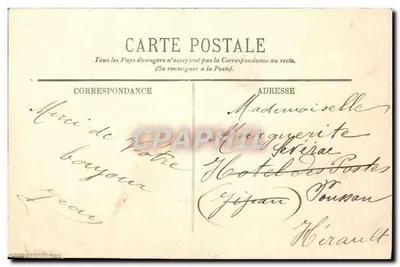 CARTE POSTALE
Tous les Pays étrangers n'acceptent pas la Correspondance au recto.
(Se renseigner à la Poste).
CORRESPONDANCE
ADRESSE
Merci de Votre
bonjour
Jean
Mademoiselle
Marguerite
Sévérac
Hotel des Postes
Poussan
Hérault